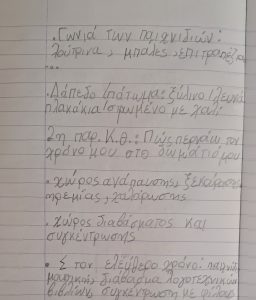 • Γωνιά των παιχνιδιών:
λούτρινα, μπάλες, επιτραπέζια
...
• Δάπεδο/πάτωμα: ξύλινο/λευκά
πλακάκια/στρωμένο με χαλί
2η παρ. Κ.Θ.: Πώς περνάω τον
χρόνο μου στο δωμάτιό μου
• χώρος ανάπαυσης, ξεκούρασης
ηρεμίας, χαλάρωσης
• χώρος διαβάσματος και
συγκέντρωσης
• Στον ελεύθερο χρόνο:
μουσική, διάβασμα λογοτεχνικών
βιβλίων, συγκέντρωση με φίλους